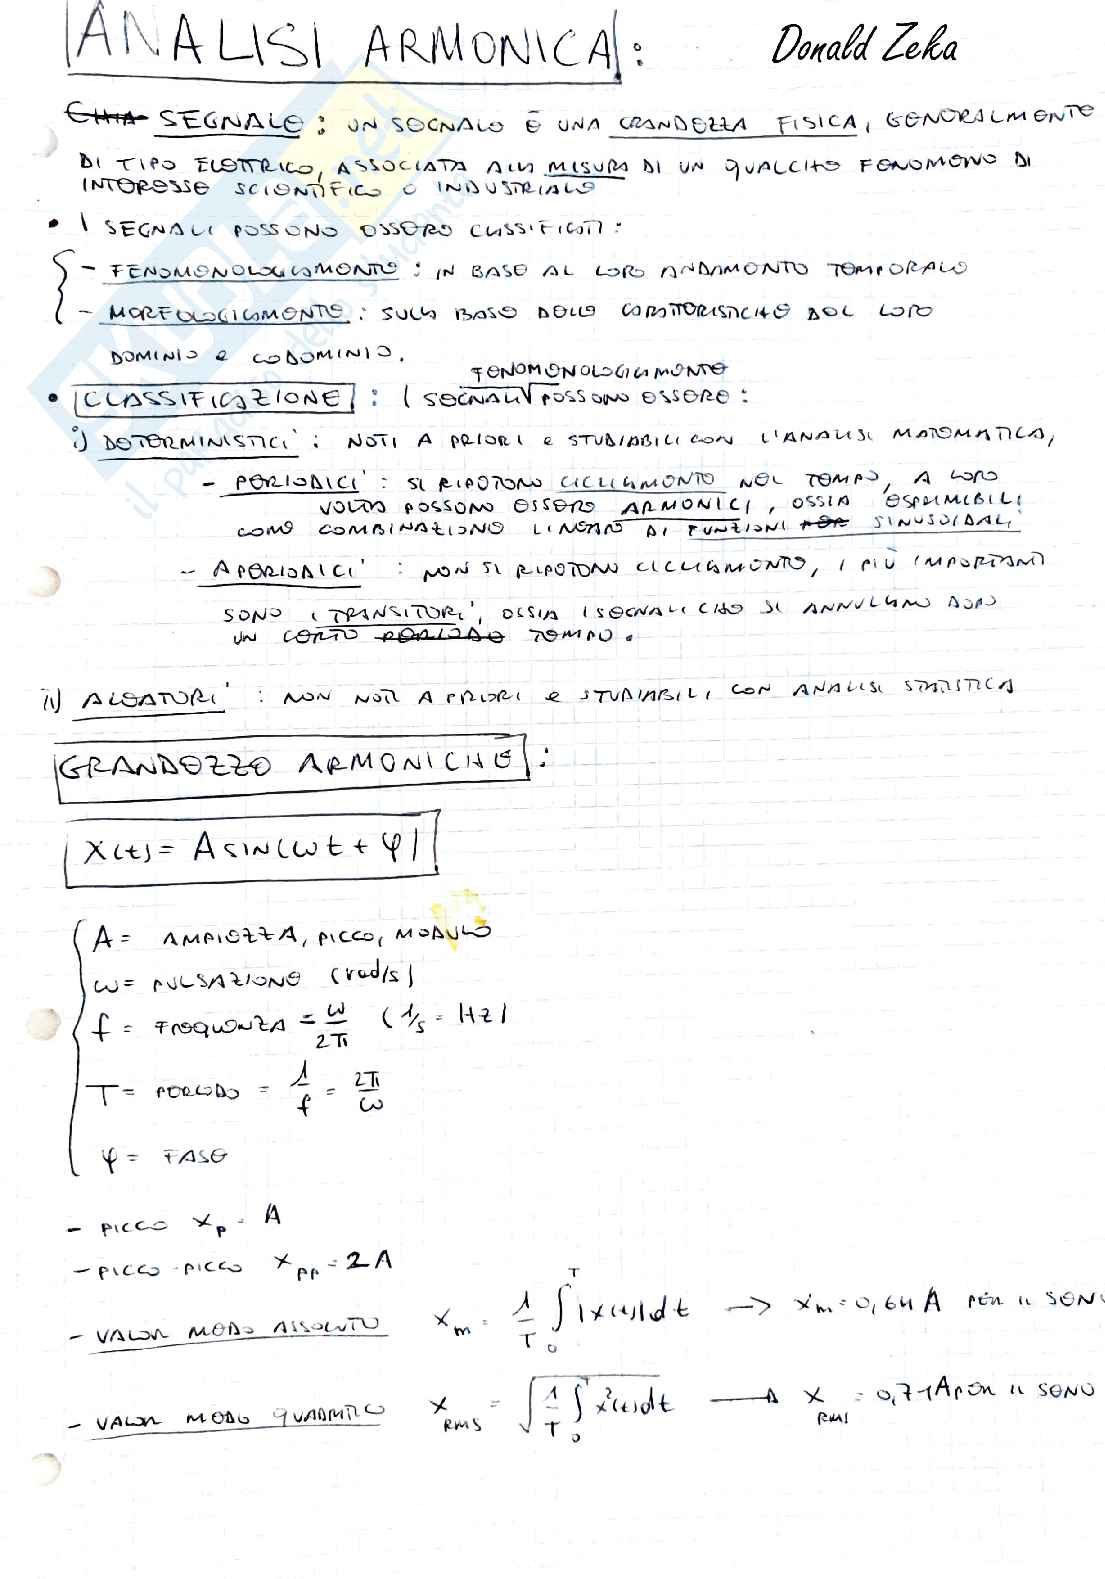 ANALISI ARMONICA:
Donald Zeka
SEGNALE: UN SEGNALE È UNA GRANDEZZA FISICA, GENERALMENTE
DI TIPO ELETTRICO, ASSOCIATA ALLA MISURA DI UN QUALCHE FENOMENO DI
INTERESSE SCIENTIFICO O INDUSTRIALE
• I SEGNALI POSSONO ESSERE CLASSIFICATI:
- FENOMENOLOGICAMENTE: IN BASE AL LORO ANDAMENTO TEMPORALE
- MORFOLOGICAMENTE: SULLA BASE DELLE CARATTERISTICHE DEL LORO
DOMINIO e CODOMINIO.
FENOMENOLOGICAMENTE
• CLASSIFICAZIONE: I SEGNALI POSSONO ESSERE:
i) DETERMINISTICI: NOTI A PRIORI e STUDIABILI CON L'ANALISI MATEMATICA,
- PERIODICI: SI RIPETONO CICLICAMENTE NEL TEMPO, A LORO
VOLTA POSSONO ESSERE ARMONICI, OSSIA ESPRIMIBILI
COME COMBINAZIONE LINEARE DI FUNZIONI SINUSOIDALI
- APERIODICI: NON SI RIPETONO CICLICAMENTE, I PIÙ IMPORTANTI
SONO I TRANSITORI, OSSIA I SEGNALI CHE SI ANNULLANO DOPO
UN CERTO TEMPO.
ii) ALEATORI: NON NOTI A PRIORI e STUDIABILI CON ANALISI STATISTICA
GRANDEZZE ARMONICHE:
x(t) = A SIN(ωt + φ)
A = AMPIEZZA, PICCO, MODULO
ω = PULSAZIONE (rad/s)
f = FREQUENZA = ω/2π (1/s = Hz)
T = PERIODO = 1/f = 2π/ω
φ = FASE
- PICCO x_p = A
- PICCO-PICCO x_pp = 2A
- VALOR MEDIO ASSOLUTO x_m = 1/T ∫₀ᵀ |x(t)| dt → x_m = 0,64 A PER IL SENO
- VALOR MEDIO QUADRATICO x_RMS = √(1/T ∫₀ᵀ x²(t) dt) → x_RMS = 0,71 A PER IL SENO